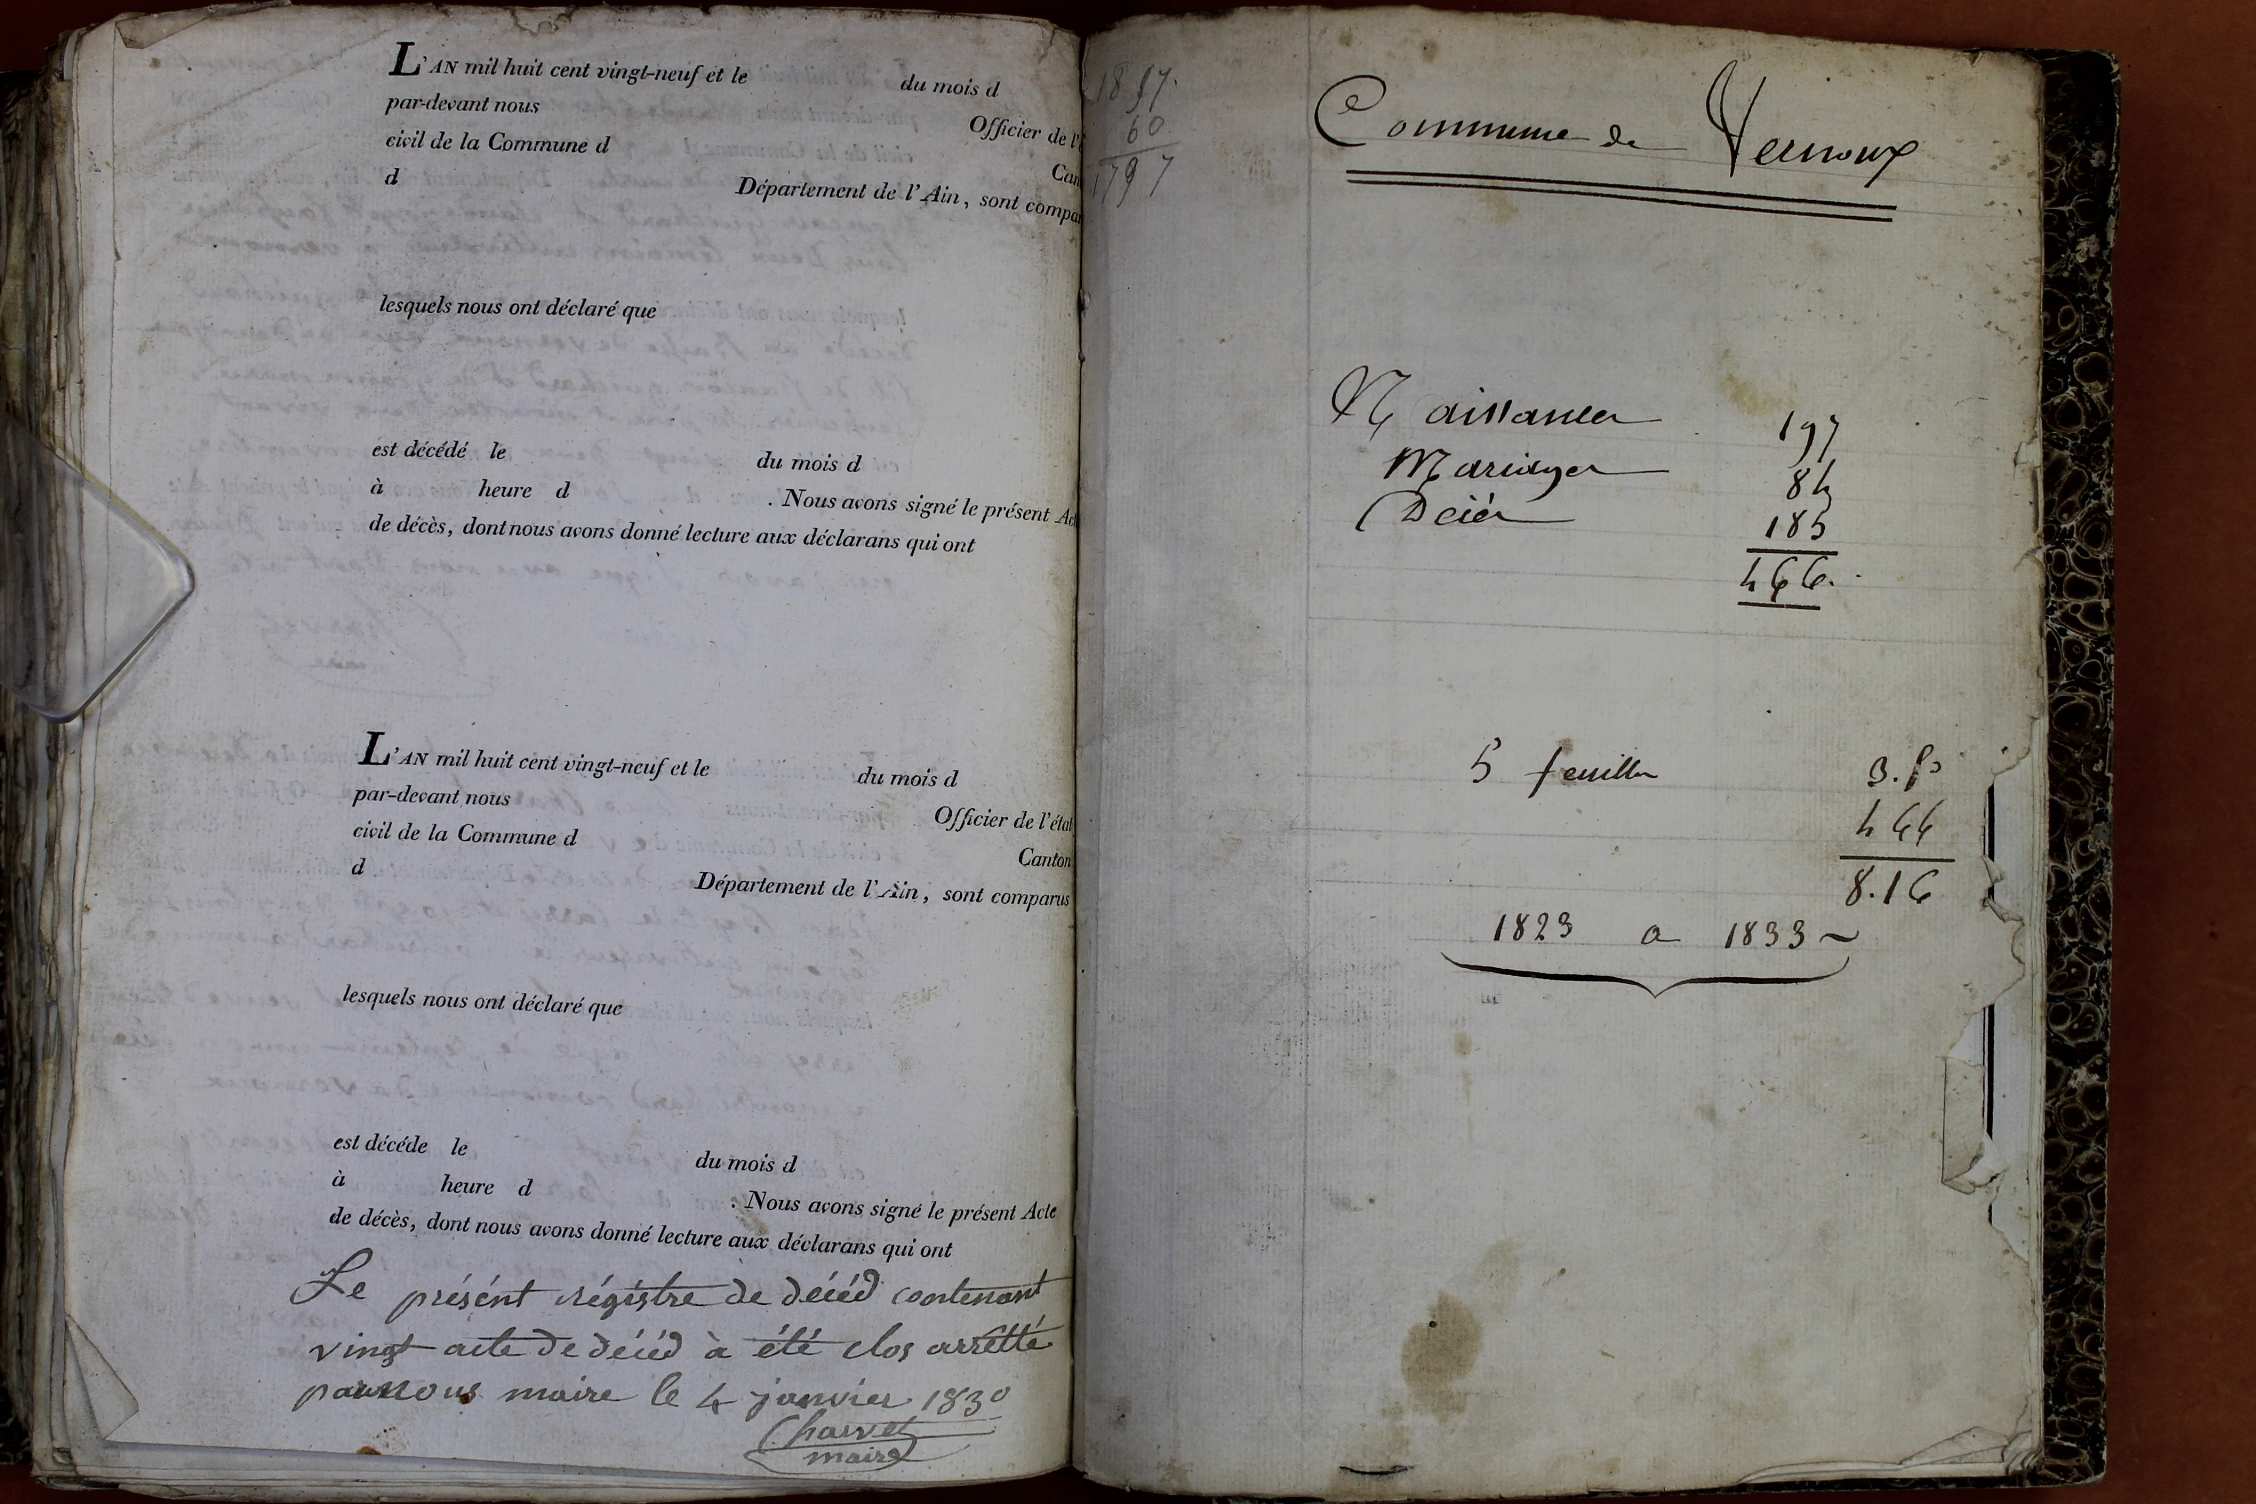 L'AN mil huit cent vingt-neuf et le du mois d
par-devant nous Officier de l'é
civil de la Commune d Can
d Département de l'Ain, sont compar
lesquels nous ont déclaré que
est décédé le du mois d
à heure d . Nous avons signé le présent Act
de décès, dont nous avons donné lecture aux déclarans qui ont
L'AN mil huit cent vingt-neuf et le du mois d
par-devant nous Officier de l'état
civil de la Commune d Canton
d Département de l'Ain, sont comparus
lesquels nous ont déclaré que
est décéde le du mois d
à heure d . Nous avons signé le présent Acte
de décès, dont nous avons donné lecture aux déclarans qui ont
Le présént régistre de décéd contenant
vingt acte de décéd à été clos arrêtté
par nous maire le 4 janvier 1830
Charvet
maire
1857
60
1797
Commune de Vernoux
Naissances 197
Mariages 84
Décès 185
466.
5 feuilles 3.50
466
8.16
1823 a 1833